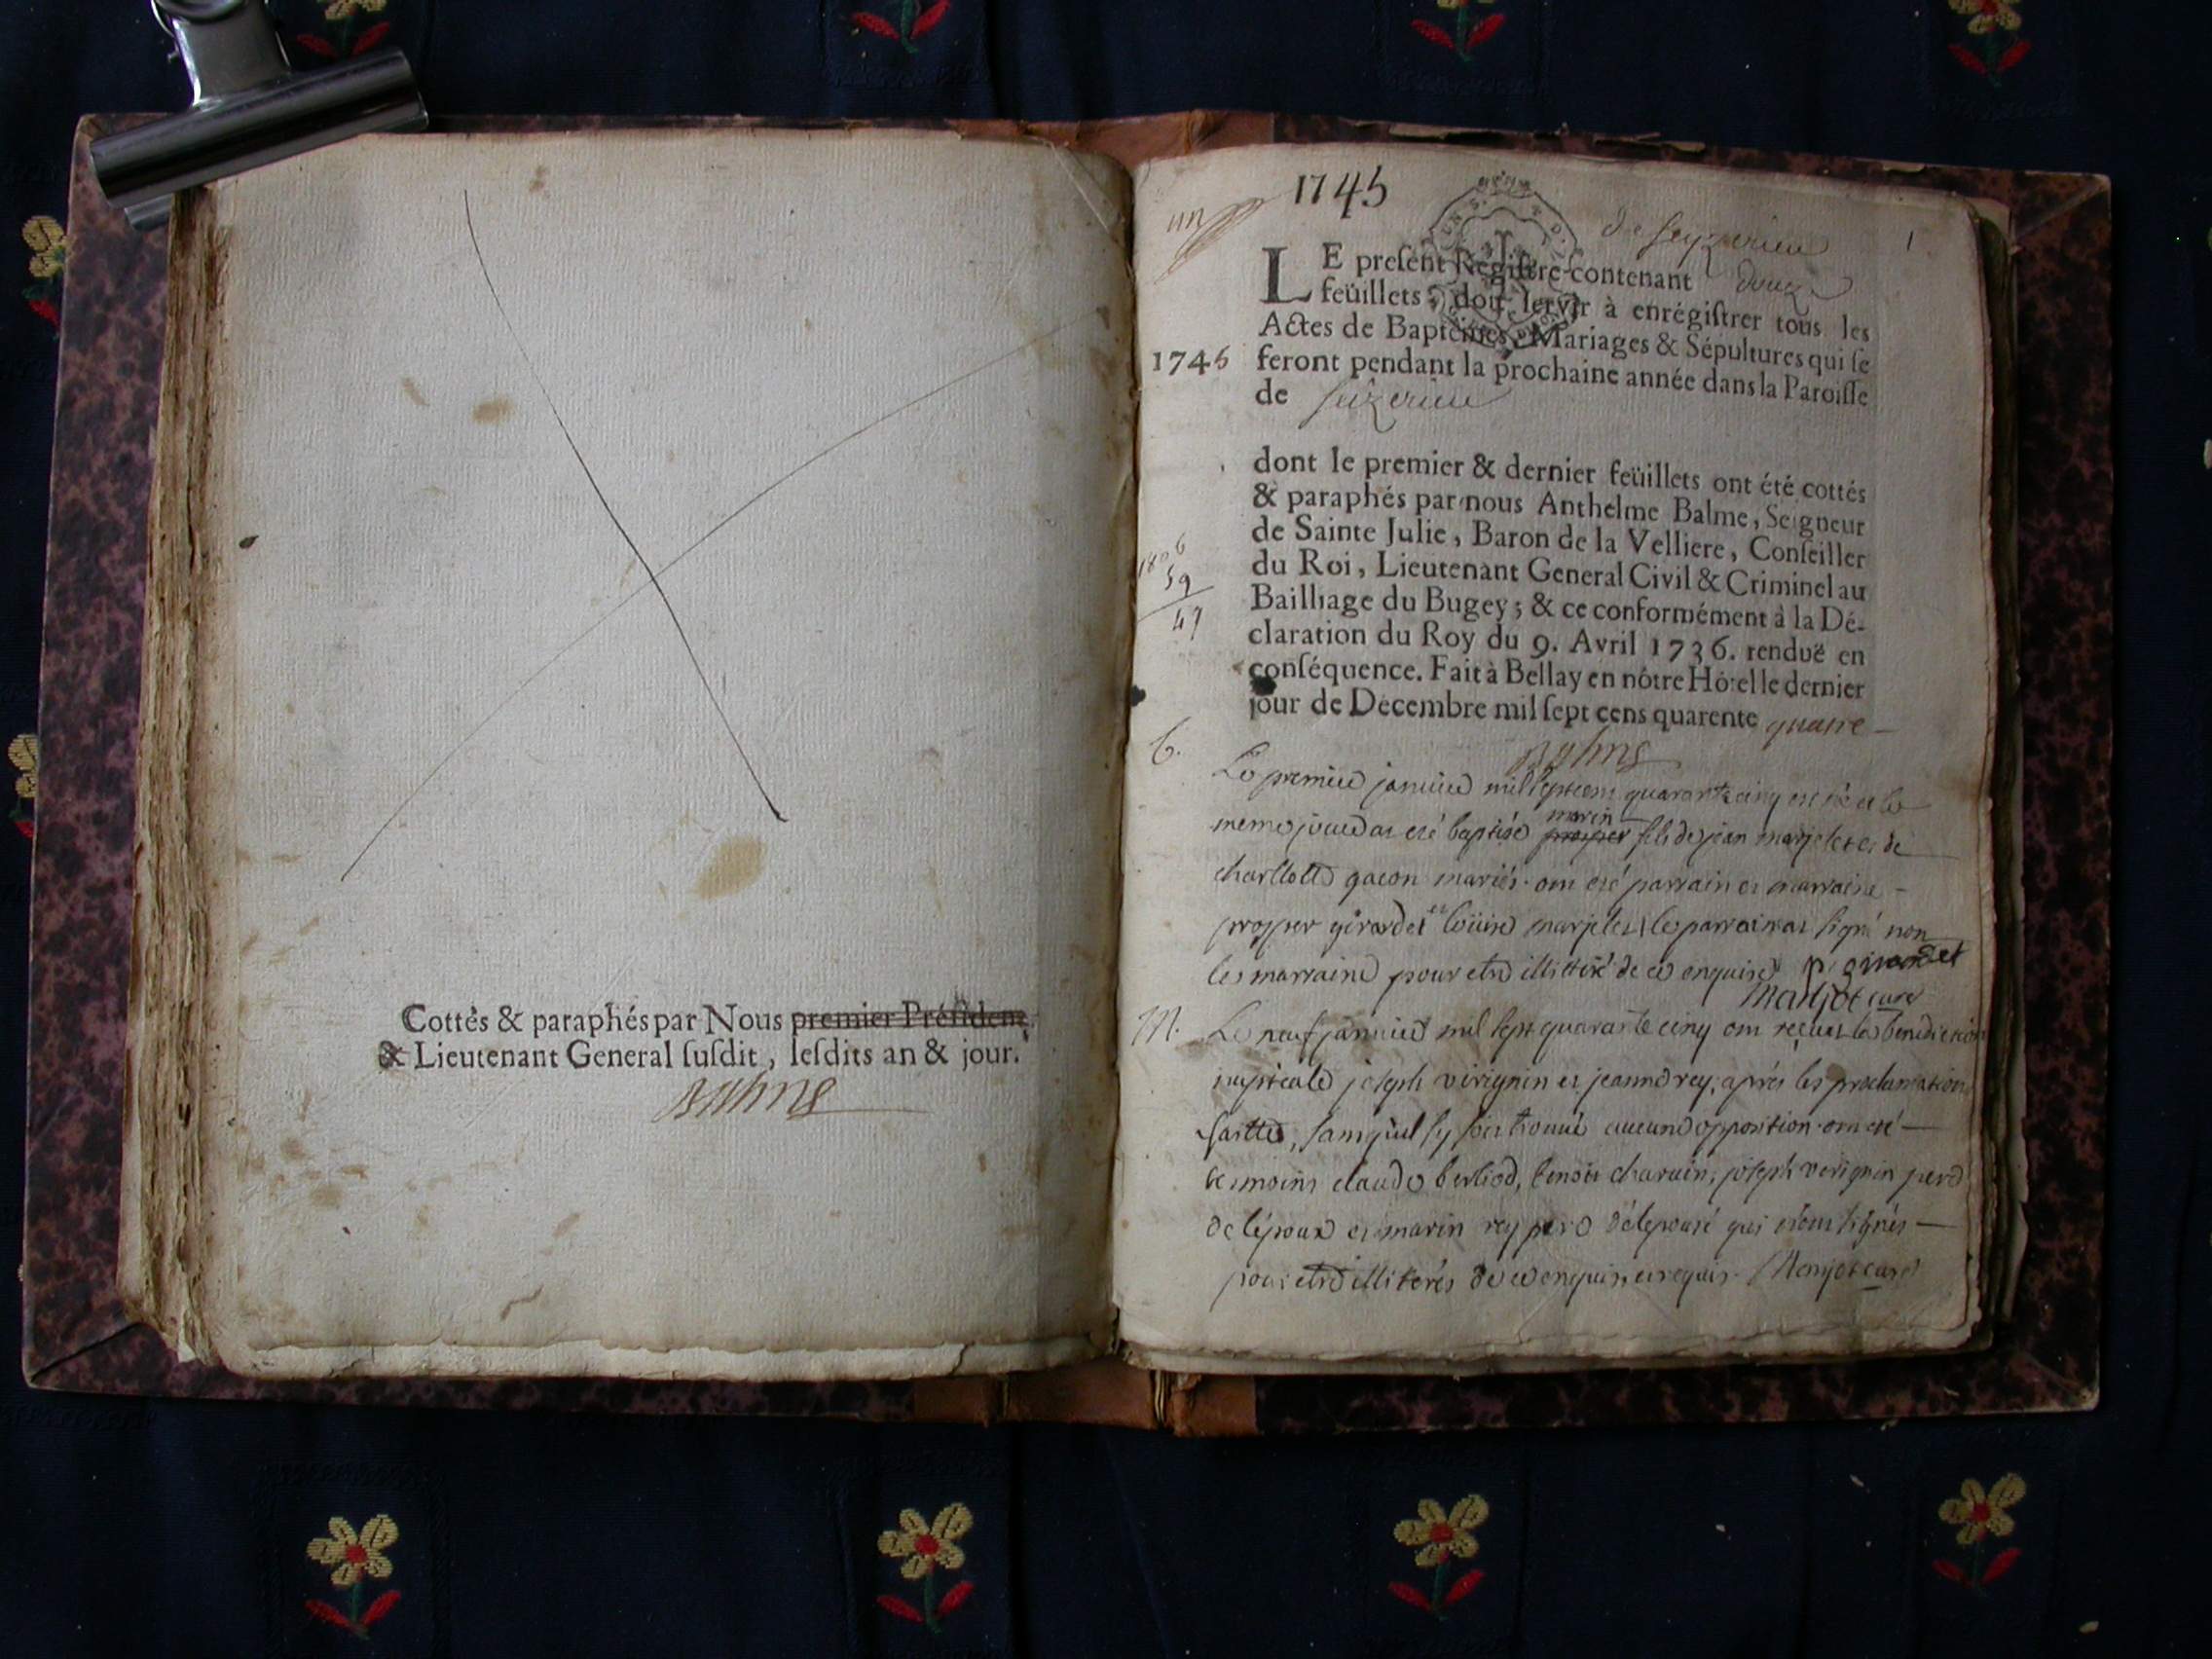 Cottés & paraphés par Nous premier Président
& Lieutenant General susdit, lesdits an & jour.
Balme
1745
un
de Seyzerieu
1
LE present Registre contenant douze
feüillets, doit servir à enrégistrer tous les
Actes de Baptêmes, Mariages & Sépultures qui se
1745
feront pendant la prochaine année dans la Paroisse
de Seizerieu
dont le premier & dernier feüillets ont été cottés
& paraphés par nous Anthelme Balme, Seigneur
de Sainte Julie, Baron de la Velliere, Conseiller
du Roi, Lieutenant General Civil & Criminel au
Bailliage du Bugey; & ce conformément à la Dé-
claration du Roy du 9. Avril 1736. renduë en
conséquence. Fait à Bellay en nôtre Hôtel le dernier
jour de Decembre mil sept cens quarente quatre
1806
59
47
Balme
b.
Le premier janvier mil sept cent quarante cinq est né et le
meme jour at eté baptisé prosper marin fils de jean marjolet et de
charllotte gacon mariés. ont eté parrain et marraine
prosper girardet et loüise marjolet le parrain at signé non
les marraine pour etre illitiré de ce enquise P. girardet
Marjot curé
M.
Le neuf janvier mil sept quarante cinq ont reçus les benediction
nuptiale joseph virignin et jeanne rey, aprés les proclamations
faittes, sans qu'il sy soit trouvé aucune opposition ont eté
temoins claude berliod, benoit charvin, joseph virignin pere
de lépoux et marin rey pere de lepouse qui n'ont signés
pour etre illiterés de ce enquis et requis. Marjot curé